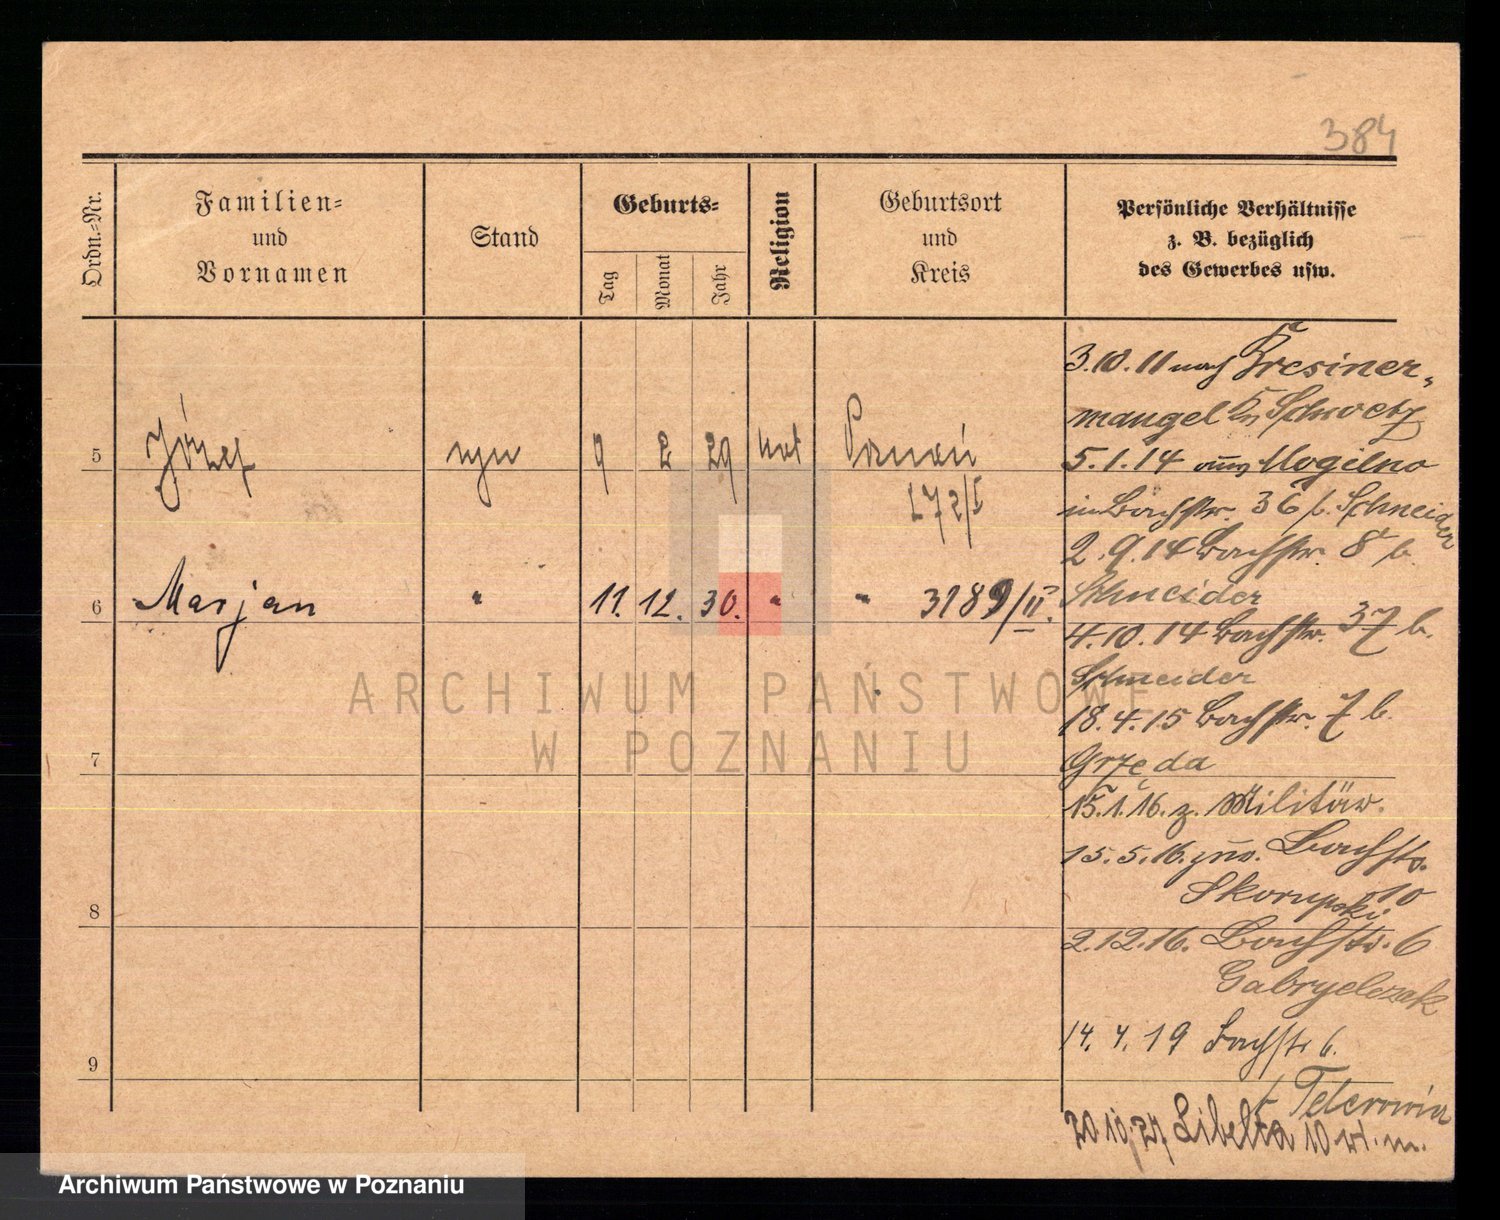 384
Ordn.-Nr.
Familien-
und
Vornamen
Stand
Geburts-
Tag
Monat
Jahr
Religion
Geburtsort
und
Kreis
Persönliche Verhältnisse
z. B. bezüglich
des Gewerbes usw.
5
Józef
syn
9
2
29
kat
Poznań
172/I
6
Marjan
"
11.
12.
30.
"
"
3189/II.
7
8
9
3.10.11 nach Bresiner-
mangel Kr. Schwetz
5.1.14 aus Mogilno
in Bachstr. 36 b. Schneider
2.9.14 Bachstr. 8 b.
Schneider
4.10.14 Bachstr. 37 b.
Schneider
18.4.15 Bachstr. 7 b.
Grzęda
15.1.16. z. Militär.
15.5.16. zur. Bachstr.
Skorupski 10
2.12.16. Bachstr. 6
Gabryelczak
14.4.19 Bachstr 6.
b Teterowicz
20 10 27 Libelta 10 wł. m.
ARCHIWUM PAŃSTWOWE
W POZNANIU
Archiwum Państwowe w Poznaniu